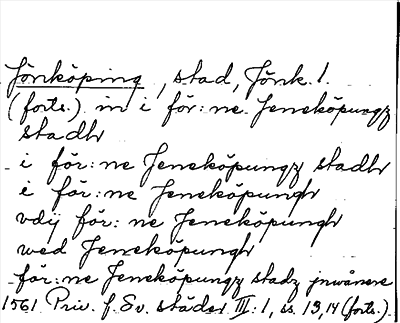 Jönköping, stad, Jönk. l.
(forts.) in i för:ne Jeneköpungz
stadh
i för:ne Jeneköpungz stadh
i för:ne Jeneköpungh
vdij för:ne Jeneköpungh
wed Jeneköpungh
för:ne Jeneköpungz stadz jnwånere
1561 Priv. f. Sv. städer III:1, ss. 13, 14 (forts.).